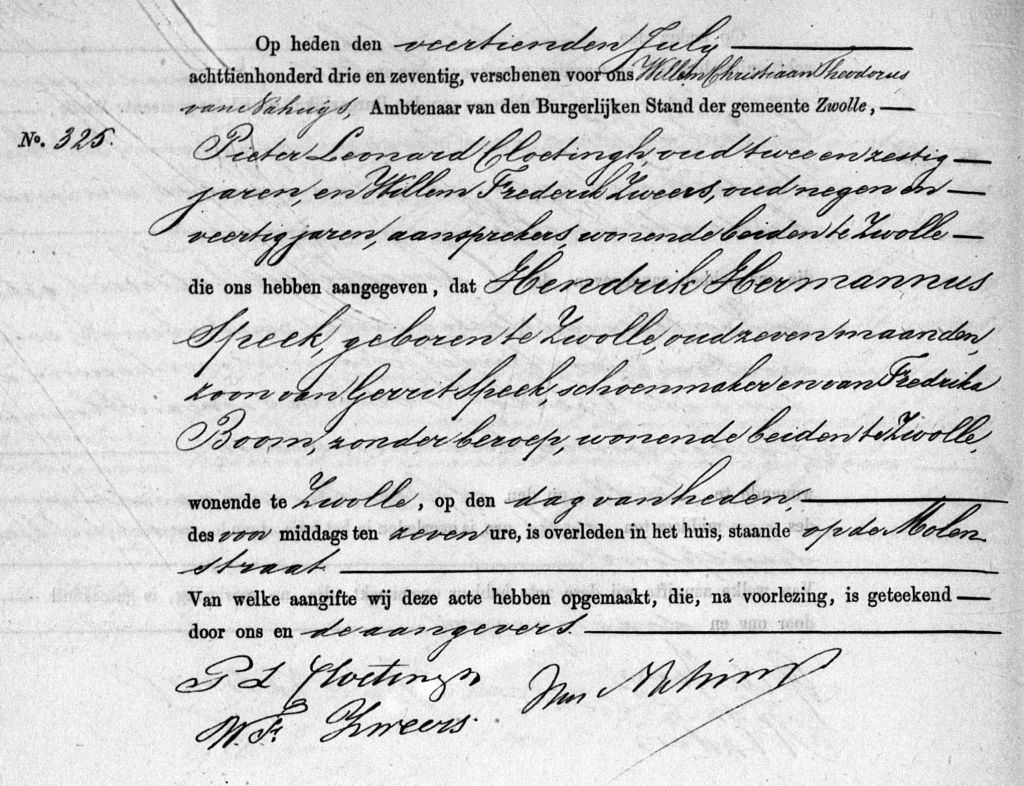 Op heden den veertienden July
achttienhonderd drie en zeventig, verschenen voor ons Willem Christiaan Theodorus
van Nahuys, Ambtenaar van den Burgerlijken Stand der gemeente Zwolle,
No. 325.
Pieter Leonard Cloetingh, oud twee en zestig
jaren, en Willem Frederik Zweers, oud negen en
veertig jaren, aansprekers, wonende beiden te Zwolle
die ons hebben aangegeven, dat Hendrik Hermannus
Speek, geboren te Zwolle, oud zeven maanden,
zoon van Gerrit Speek, schoenmaker en van Fredrika
Boom, zonder beroep, wonende beiden te Zwolle,
wonende te Zwolle, op den dag van heden,
des voor middags ten zeven ure, is overleden in het huis, staande op de Molen
straat
Van welke aangifte wij deze acte hebben opgemaakt, die, na voorlezing, is geteekend
door ons en de aangevers.
P L Cloetingh
van Nahuys
W. F. Zweers.